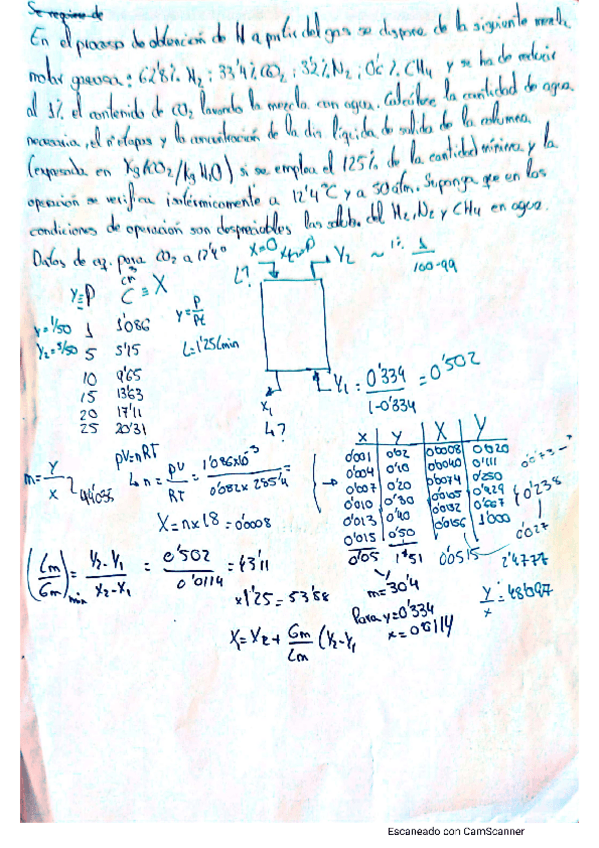 Se regimo de
En el proceso de obtención de H a partir del gas se dispone de la siguiente mezcla
molar gaseosa: 62'8% H2; 33'4% CO2; 3'2% N2; 0'6% CH4 y se ha de reducir
al 1% el contenido de CO2 lavando la mezcla con agua. Calcúlese la cantidad de agua
necesaria, el nº etapas y la concentración de la dis líquida de salida de la columna
(expresada en Kg CO2/kg H2O) si se emplea el 125% de la cantidad mínima y la
operación se verifica isotérmicamente a 12'4ºC y a 50 atm. Suponga que en las
condiciones de operación son despreciables las solub. del H2, N2 y CH4 en agua.
Datos de eq. para CO2 a 12'4º
X=0
Y2 ~ 1% 1/100-99
L?
y=P C cm3 ≡ X
y=1/50 1 1'086
y=P/Pt
Y2=5/50 5 5'15
L=1'25Lmin
10 9'65
15 13'63
20 17'11
25 20'31
Y1 = 0'334/1-0'334 = 0'502
X1
L?
pV=nRT
m=Y/X
n = PV/RT = 1'086x10^-3/0'082x285'4 =
X=nx18=0'0008
x y X Y
0'001 0'02 0'0008 0'020
0'004 0'10 0'0040 0'111
0'007 0'20 0'0074 0'250
0'010 0'30 0'0105 0'429
0'013 0'40 0'0132 0'667
0'015 0'50 0'0156 1'000
0'05 1'51 0'0515 2'4778
0'238
0'027
m=30'4
y/x = 48'097
(Lm/Gm)min = Y2-Y1/X2-X1 = 0'502/0'0114 = 43'11
x1'25=53'88
Para y=0'334
x=0'0114
X1=X2+Gm/Lm (Y2-Y1
Escaneado con CamScanner